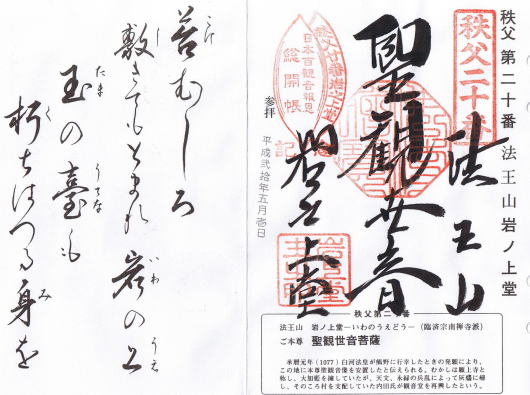 秩父第二十番 法王山岩ノ上堂
秩父二十番
法王山
聖観世音
岩之上堂
秩父廿番岩之上堂
日本百観音報恩
総開帳
記
参拝
平成弐拾年五月壱日
秩父第二十番
法王山 岩ノ上堂―いわのうえどう―(臨済宗南禅寺派)
ご本尊 聖観世音菩薩
承暦元年(1077)白河法皇が熊野に行幸したときの発願により、
この地に本尊聖観音像を安置したと伝えられる。むかしは巌上寺と
称し、大加藍を擁していたが、天文、永禄の兵乱によって灰燼に帰
し、そのころ村を支配していた内田氏が観音堂を再興したという。
苔むしろ
こけ
敷きてもとまれ岩の上
し
いわ
うえ
玉の臺も
たま
うてな
朽ちはつる身を
く
み